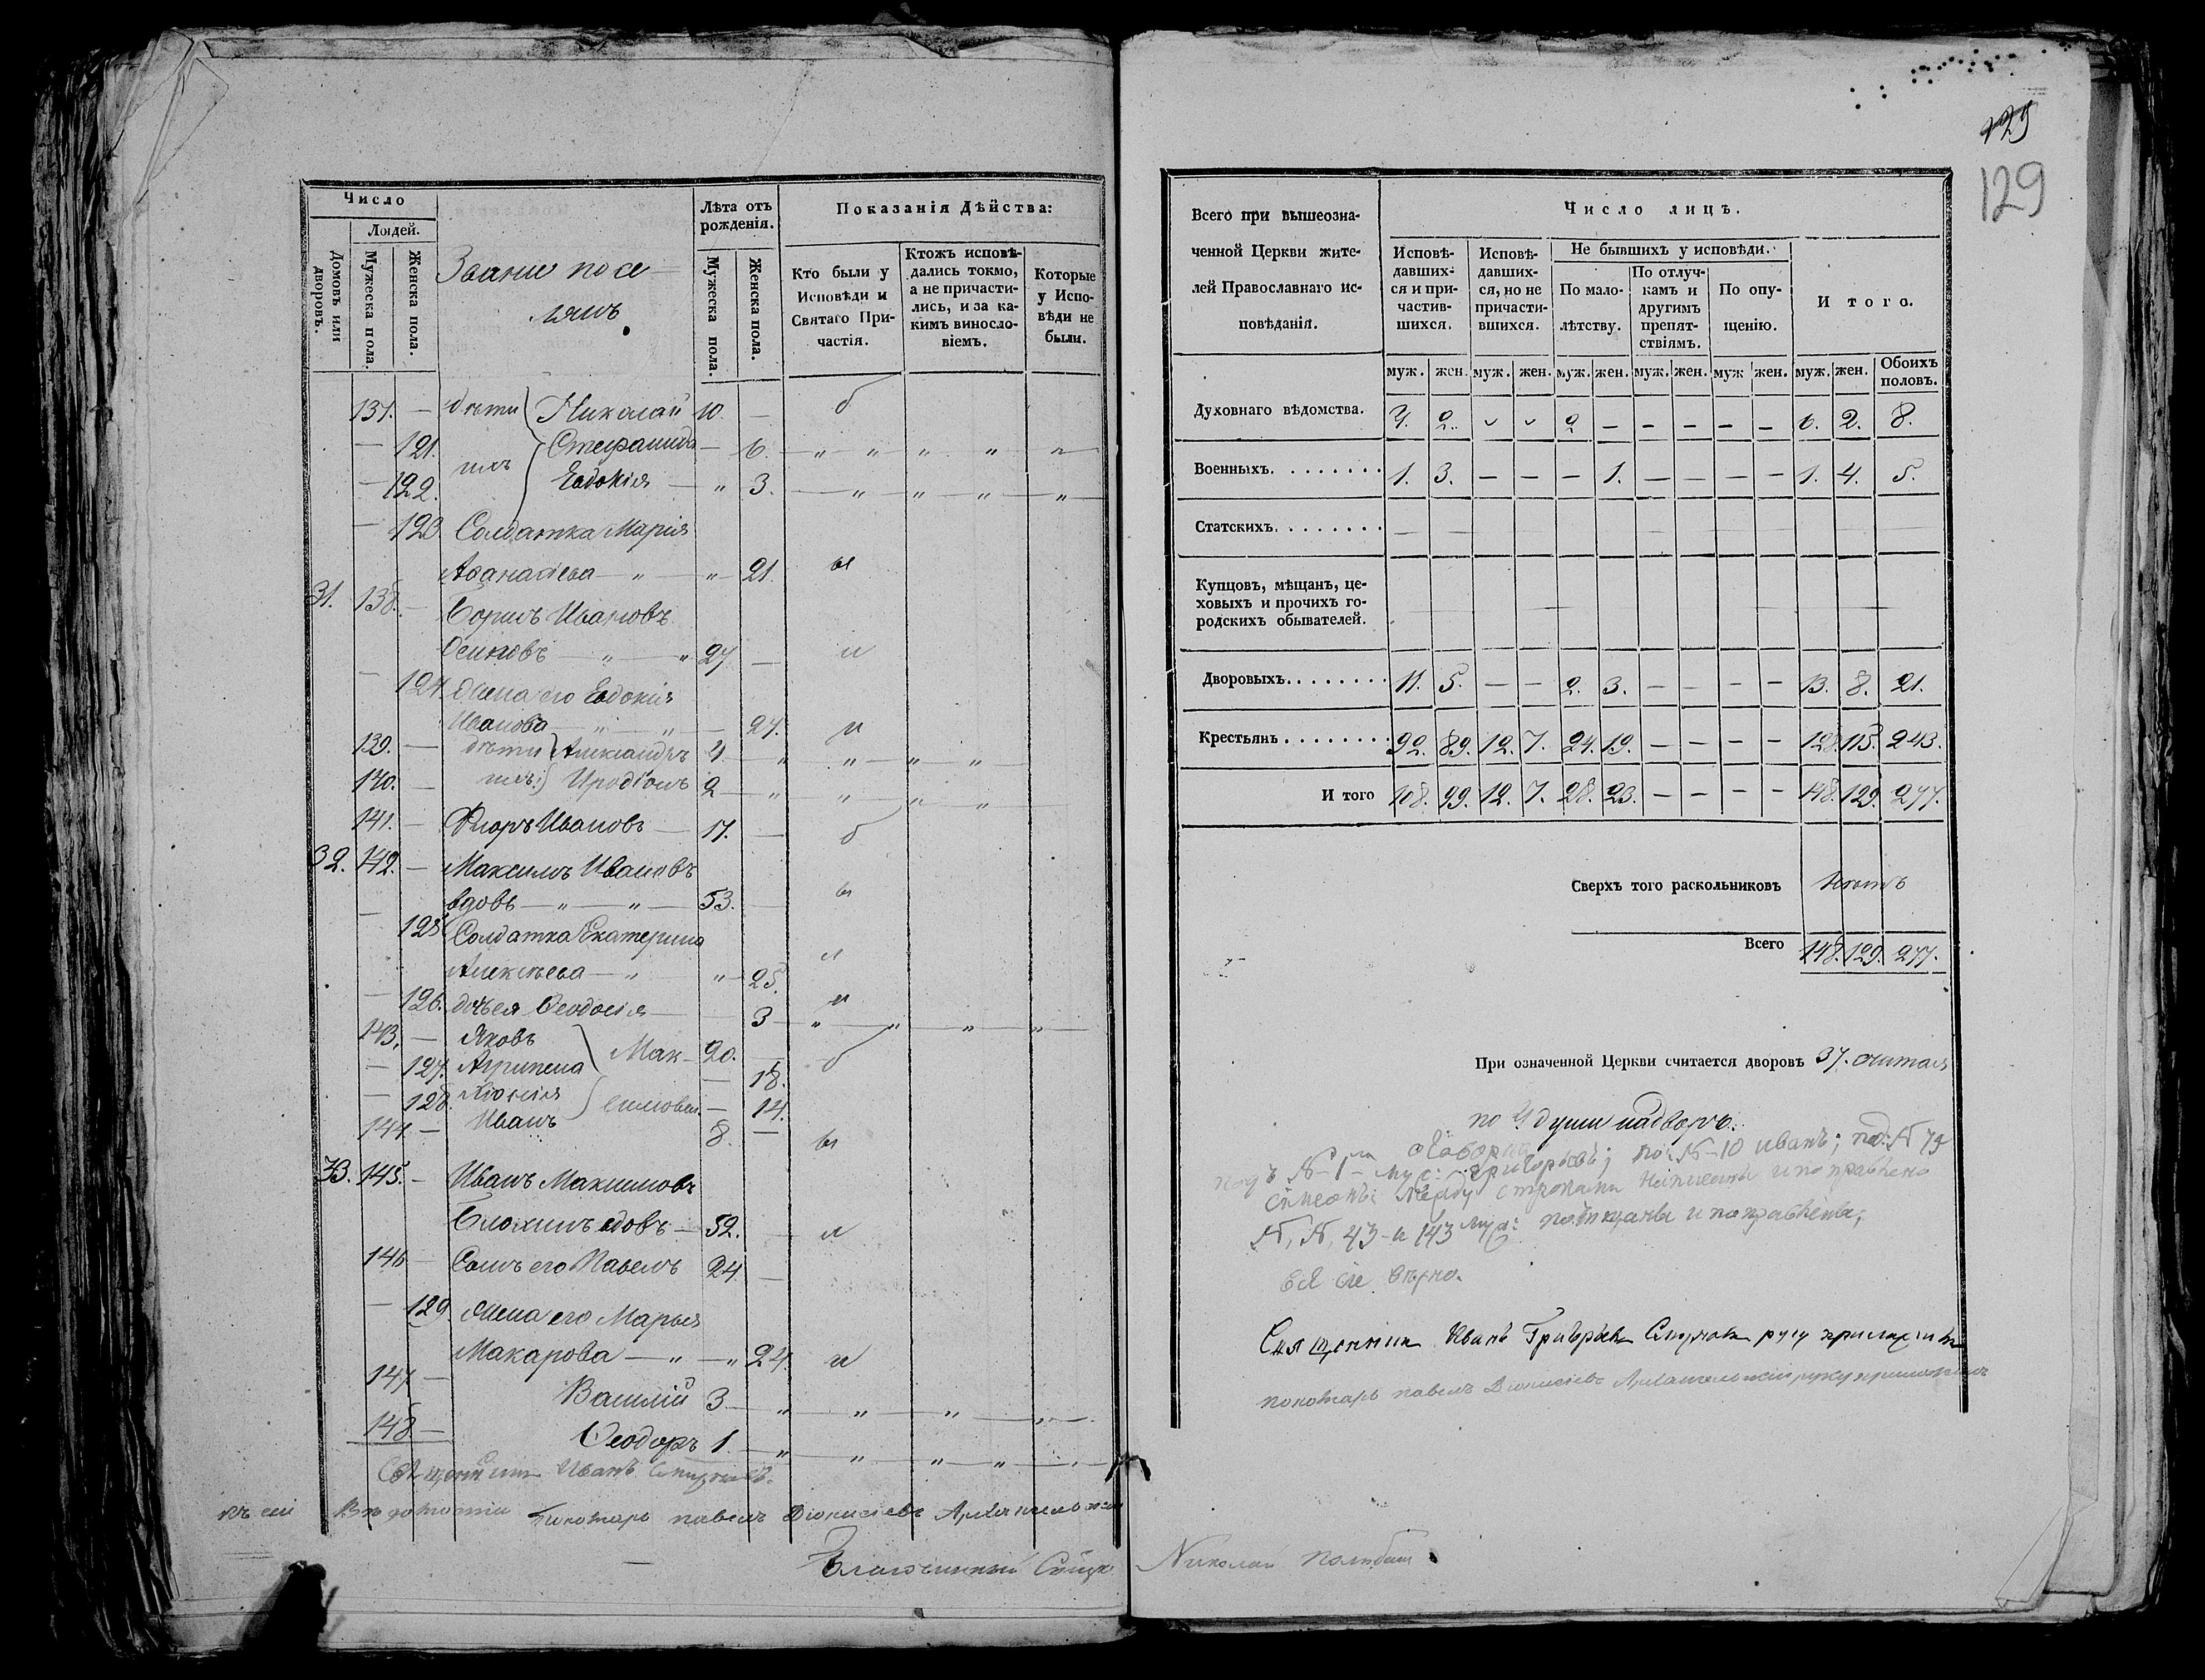 Число
Людей.
Домовъ или дворовъ.
Мужеска пола.
Женска пола.
Звание посе-
лянъ
Лѣта отъ рожденія.
Мужеска пола.
Женска пола.
Показанія Дѣйства:
Кто были у Исповѣди и Святаго Причастія.
Ктожъ исповѣдались токмо, а не причастились, и за какимъ винословіемъ.
Которые у Исповѣди не были.
137. — дѣти Николай 10. — б
— 121. ихъ Стефанида — 6. — „ „ „ „ „
— 122. Евдокія — „ 3. — „ „ „ „
— 123. Солдатка Марія
Аѳанасіева — „ — „ — 21. ы
31. 138. — Борисъ Ивановъ
Осиковъ — „ — „ 27 — л
— 124. Жена его Евдокія
Иванова — „ — „ — 27. и
139. — дѣти Александръ 4 — „ „ „ „
140. — ихъ: Иродіонъ 2 — „ „ „ „
141. — Флоръ Ивановъ — 17. — б
32. 142. — Максимъ Ивановъ
вдовъ — „ — „ — 53. — ы
— 125. Солдатка Екатерина
Алексѣева — „ „ — 25. л
— 126. дочь ея Ѳеодосія — 3 — „ „ „ „
143. — Яковъ Мак- 20. — б
— 127. Агрипена — 18.
— 128. симовы. — 14.
144 — Иванъ 8. — ы
33. 145. — Иванъ Максимовъ
Блохинъ вдовъ — 52. — л
146 — Сынъ его Павелъ 24 —
— 129. Жена его Марья
Макарова — „ — „ 24. и
147 — Василій 3 — „ „ „ „
148 — Ѳеодоръ 1. — „ „ „ „
Священникъ Иванъ Смирновъ.
Къ сей Вѣдомости Пономарь Павелъ Діонисіевъ Архангельскій
Благочинный Николай
129
129
Всего при вышеозначенной Церкви жителей Православнаго исповѣданія.
Число лицъ.
Исповѣдавшихся и причастившихся.
Исповѣдавшихся, но не причастившихся.
Не бывшихъ у исповѣди.
По малолѣтству.
По отлучкамъ и другимъ препятствіямъ.
По опущенію.
И того.
муж. жен. муж. жен. муж. жен. муж. жен. муж жен. муж. жен. Обоихъ половъ.
Духовнаго вѣдомства. 4. 2. 2 — — — — — 6. 2. 8.
Военныхъ. 1. 3. — — — 1. — — — — 1. 4. 5.
Статскихъ.
Купцовъ, мѣщанъ, цеховыхъ и прочихъ городскихъ обывателей.
Дворовыхъ. 11. 5. — — 2. 3. — — — — 13. 8. 21.
Крестьянъ 92. 89. 12. 7. 24. 19. — — — — 128. 115. 243.
И того 108. 99. 12. 7. 28. 23. — — — — 148. 129. 277.
Сверхъ того раскольниковъ нѣтъ
Всего 148. 129. 277.
При означенной Церкви считается дворовъ 37. считая
по 4 души на дворъ.
подъ № 1 муж: Григорьевъ; по № 10 иванъ; под: № 79
Симеонъ: между строками написаны и поправлено
№, № 43 и 143 муж: подчищены и поправлены;
вѣрно.
Священникъ Иванъ Григорьевъ Смирновъ руку приложилъ
пономарь павелъ Діонисіевъ Архангельскій руку приложилъ